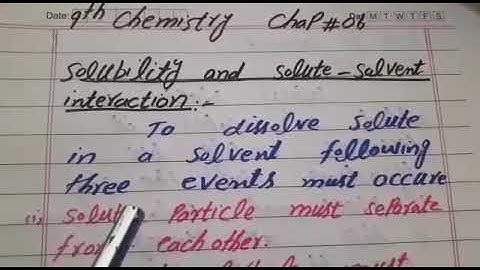 Date:
9th Chemistry Chap#06
M T W T F S
Solubility and solute-solvent
interaction:-
To dissolve solute
in a solvent following
three events must occure
(i) solute Particle must separate
from each other.
must